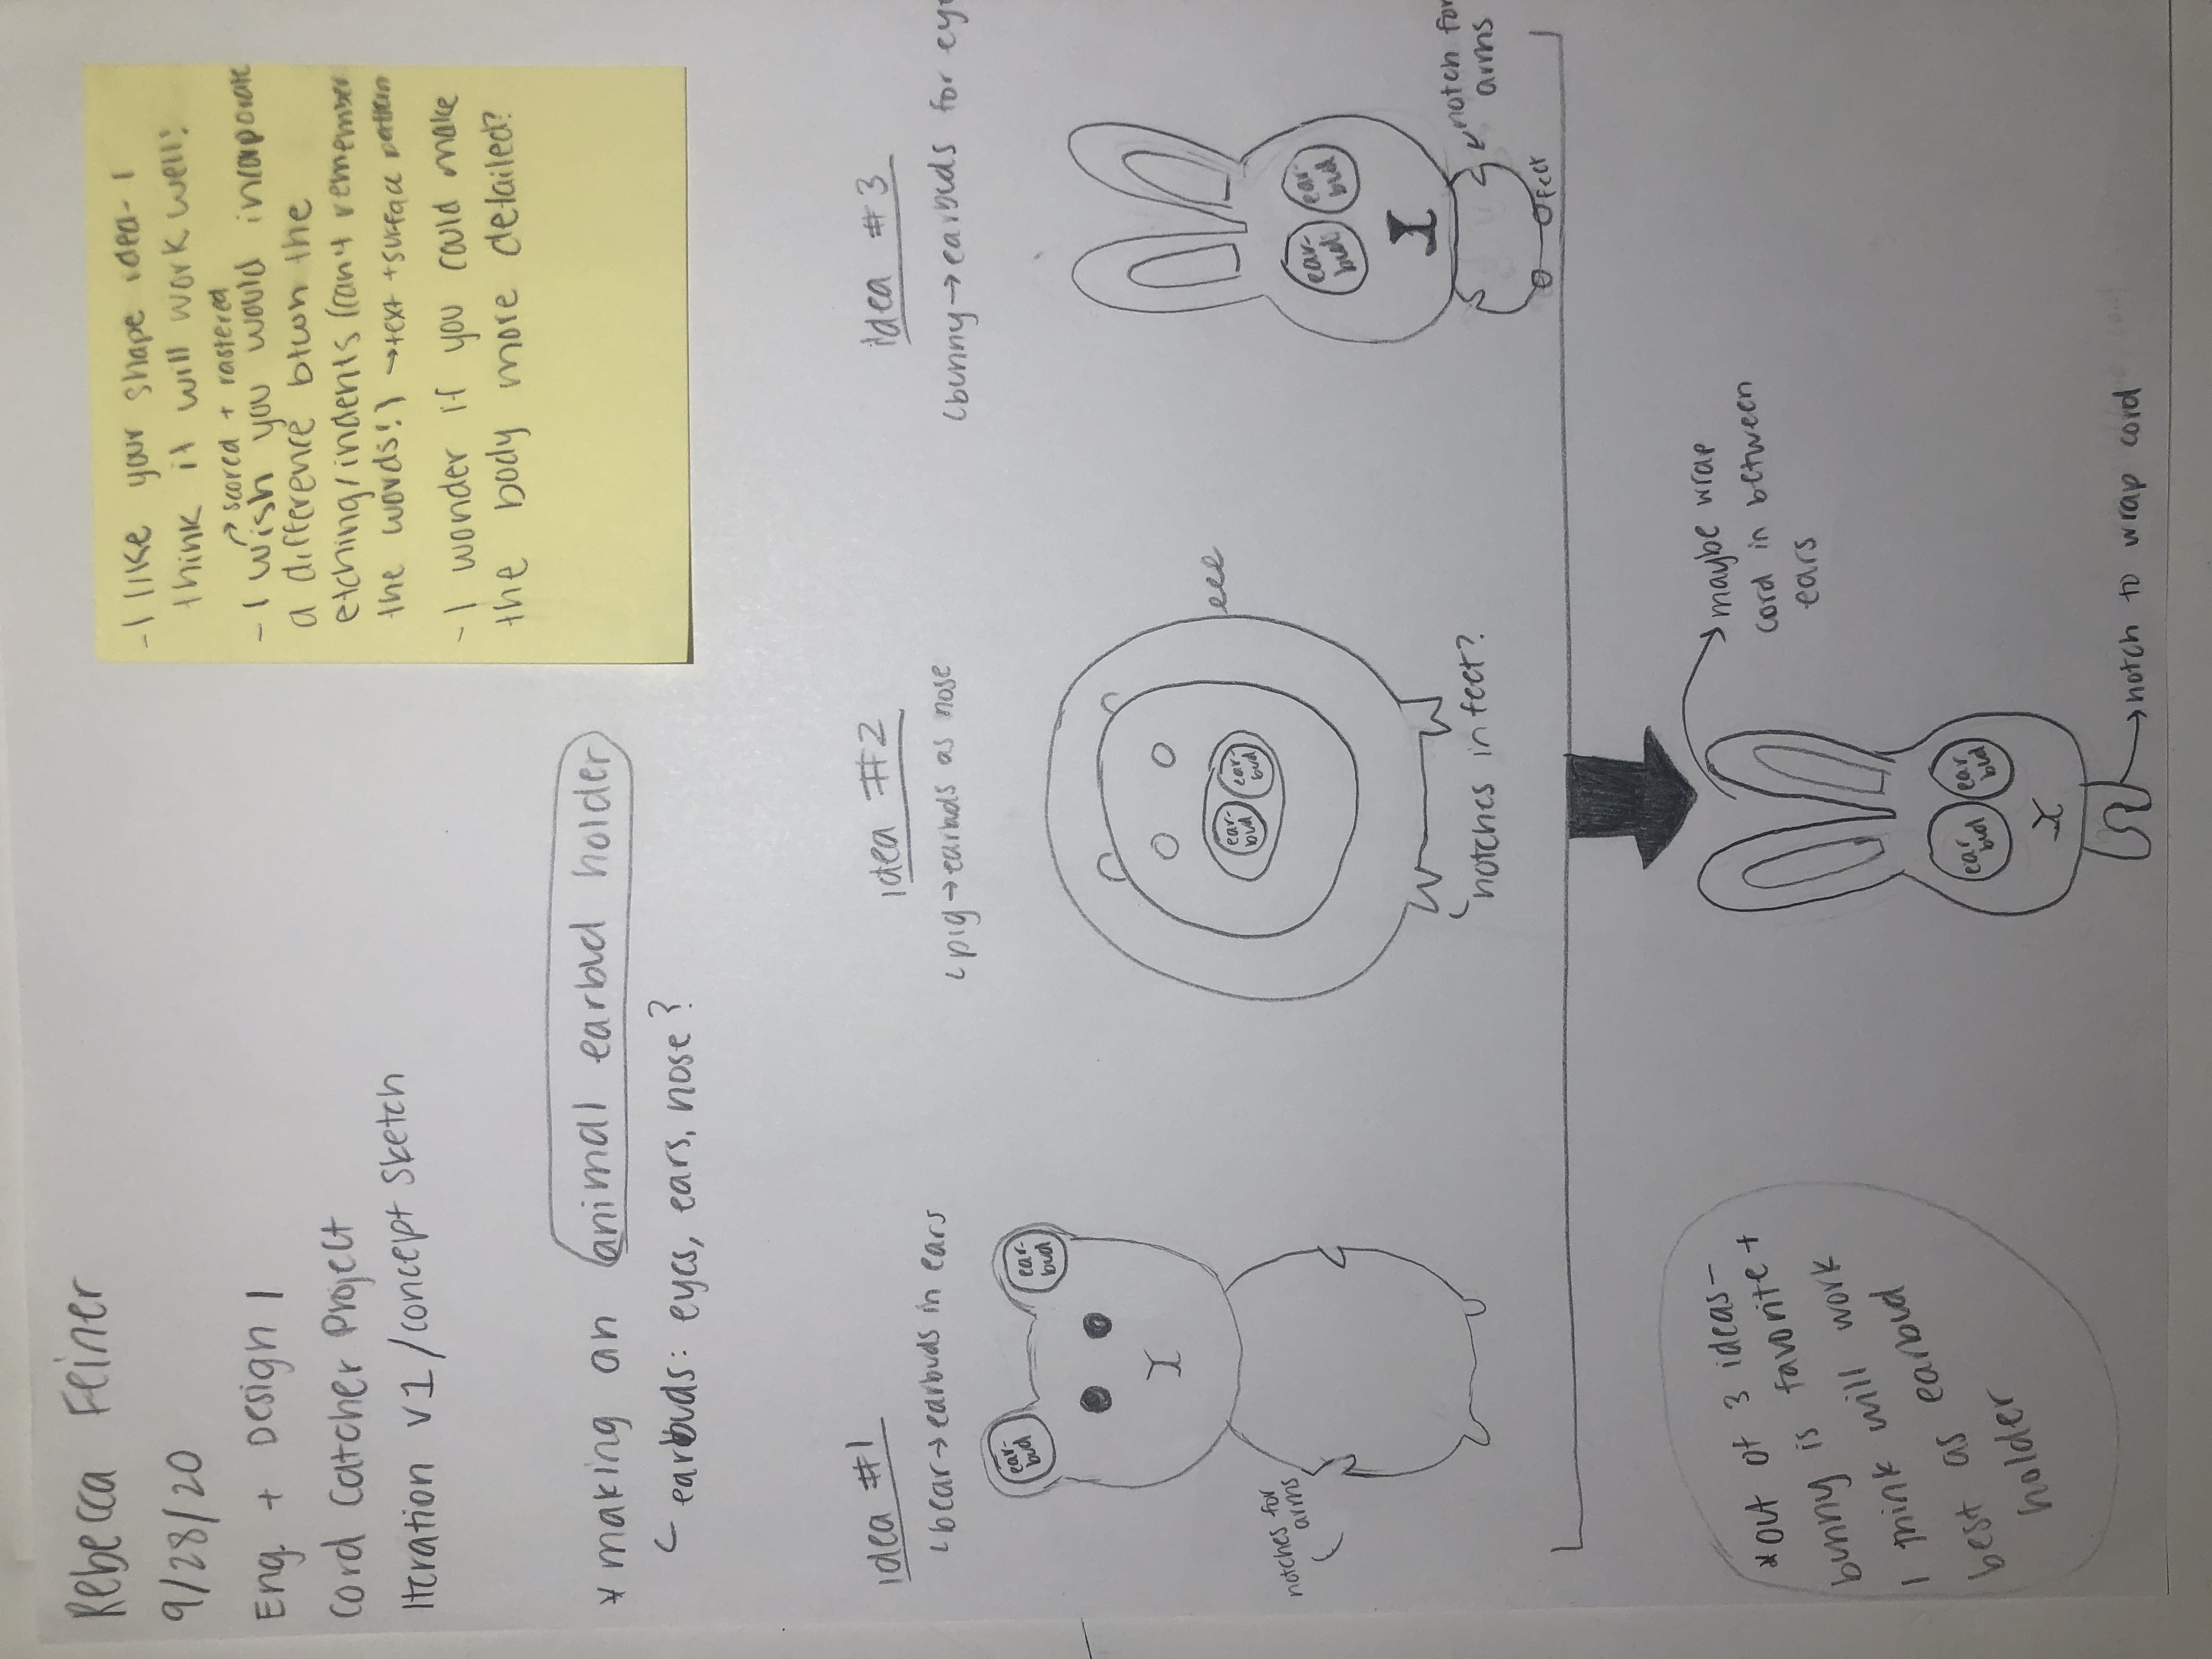 Rebecca Feiner
9/28/20
Eng. + Design 1
Cord Catcher Project
Iteration V1/concept sketch
-I like your shape idea- I
think it will work well!
→ scored + rastered
- I wish you would incorporate
a difference btwn the
etching/indents (can't remember
the words!) →text +surface pattern
- I wonder if you could make
the body more detailed?
* making an animal earbud holder
earbuds: eyes, ears, nose?
idea #1
bear→earbuds in ears
ear-
bud
ear-
bud
notches for
arms
idea #2
pig→earbuds as nose
ear-
bud
ear-
bud
notches in feet?
idea #3
bunny→earbuds for eye
ear-
bud
ear-
bud
notch for
arms
feet
*out of 3 ideas-
bunny is favorite +
I think will work
best as earbud
holder
maybe wrap
cord in between
ears
ear
bud
ear
bud
notch to wrap cord